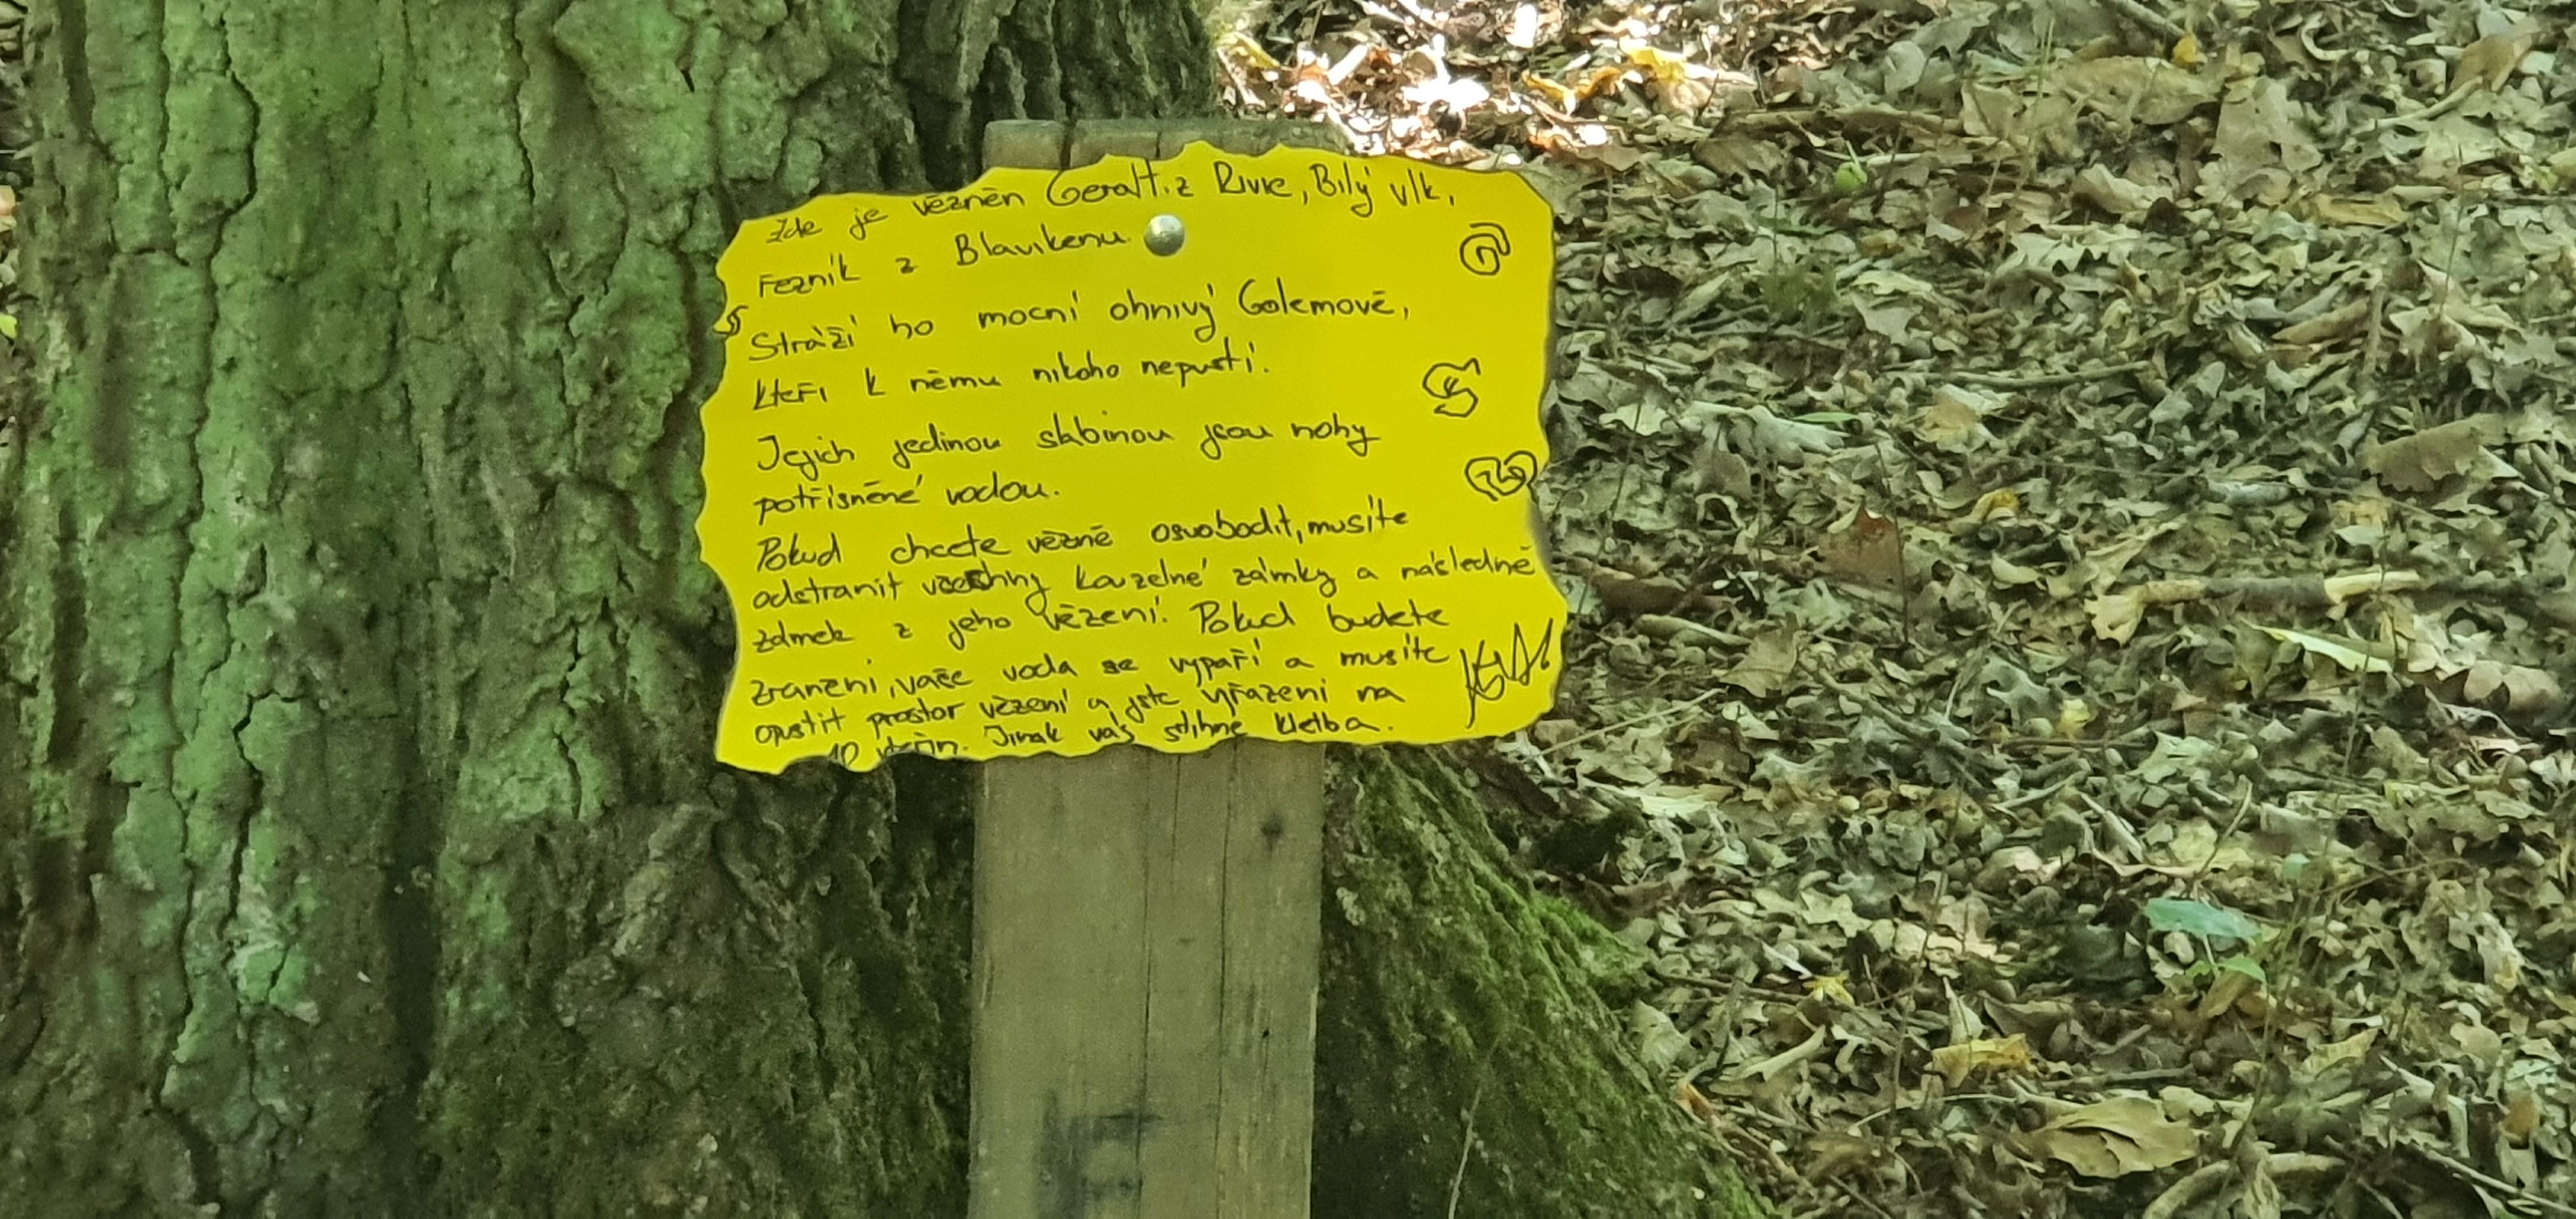 Zde je vězněn Geralt z Rivie, Bílý vlk,
řezník z Blavikenu.
Stráží ho mocní ohnivý Golemové,
kteří k němu nikoho nepustí.
Jejich jedinou slabinou jsou nohy
potřísněné vodou.
Pokud chcete vězně osvobodit, musíte
odstranit všechny kouzelné zámky a následně
zámek z jeho vězení. Pokud budete
zranění, vaše voda se vypaří a musíte
opustit prostor vězení a jste vyřazeni na
10 vteřin. Jinak vás stihne kletba.
F